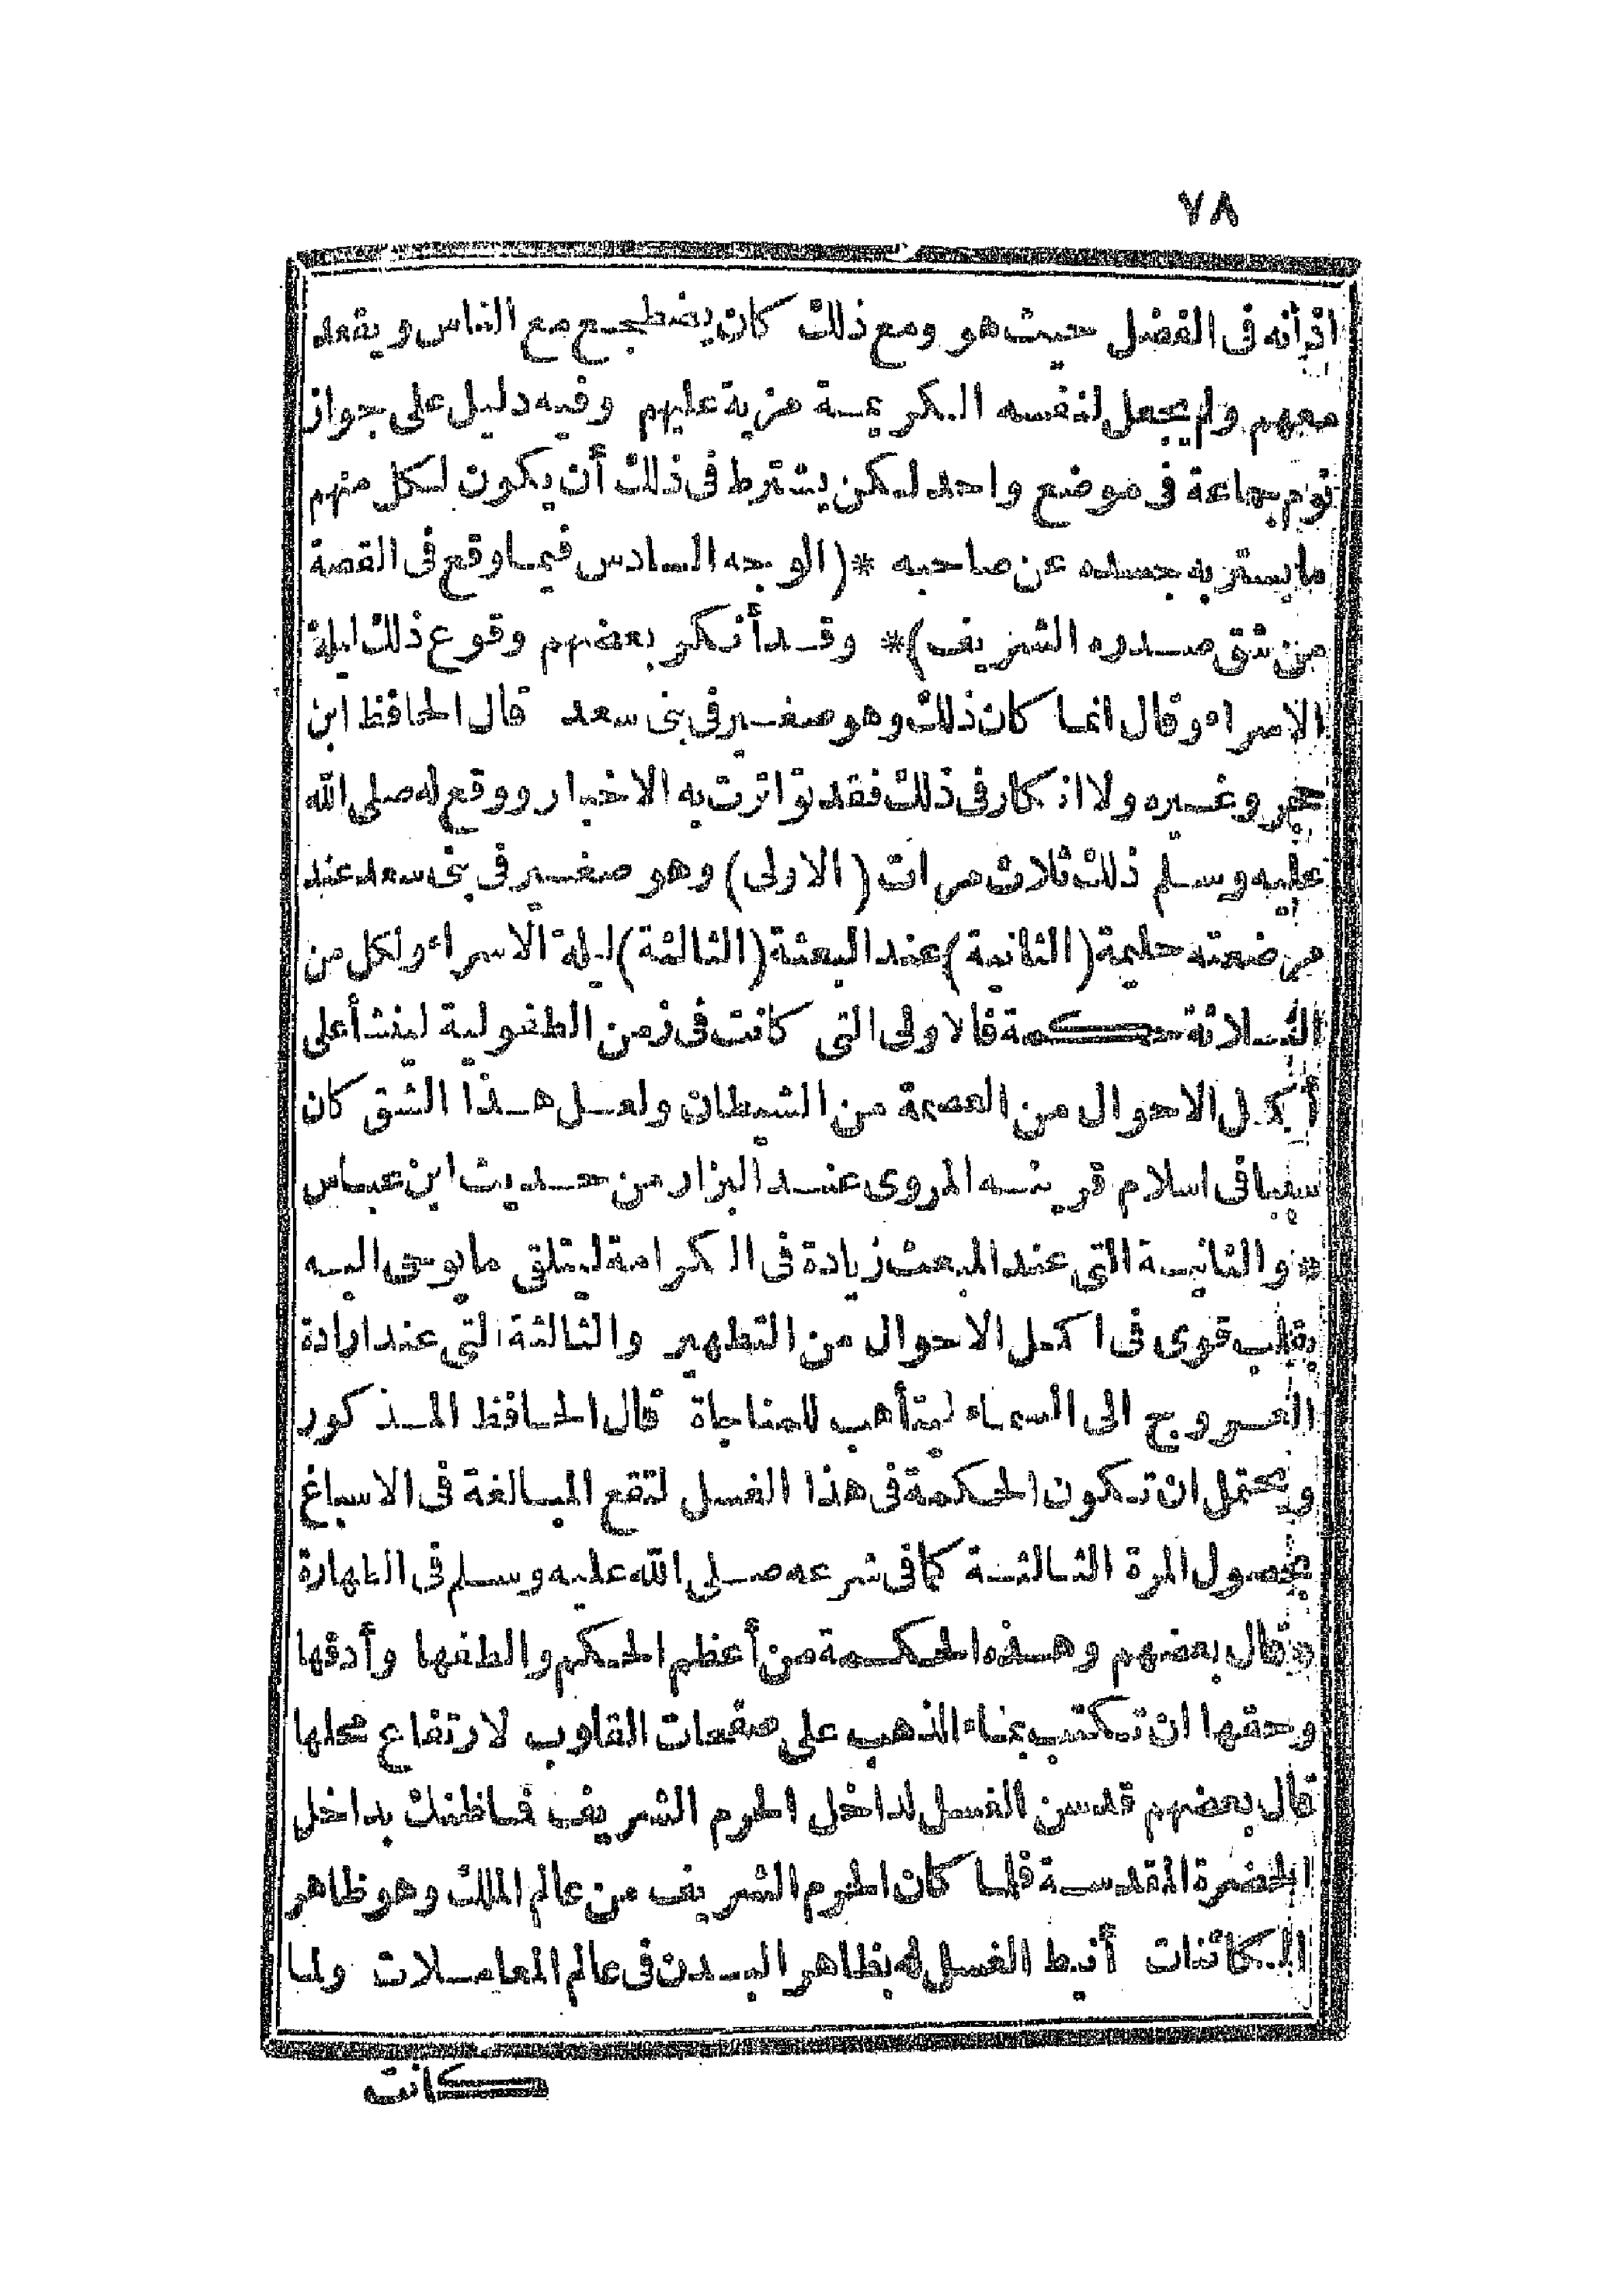 ٧٨
اذ أنه فى الفضل حيث هو ومع ذلك كان يضطجع مع الناس ويقعد
معهم ولم يجعل لنفسه الكريمة مزية عليهم وفيه دليل على جواز
نوم جماعة فى موضع واحد لكن يشترط فى ذلك أن يكون لكل منهم
ما يستر به جسده عن صاحبه *(الوجه السادس فيما وقع فى القصة
من شق صدره الشريف)* وقد أنكر بعضهم وقوع ذلك ليلة
الاسراء وقال انما كان ذلك وهو صغير فى بنى سعد قال الحافظ ابن
حجر وغيره ولا انكار فى ذلك فقد تواترت به الاخبار ووقع له صلى الله
عليه وسلم ذلك ثلاث مرات (الاولى) وهو صغير فى بنى سعد عند
مرضعته حليمة (الثانية) عند البعثة (الثالثة) ليلة الاسراء ولكل من
الثلاثة حكمة فالاولى التى كانت فى زمن الطفولية لينشأ على
أكمل الاحوال من العصمة من الشيطان ولعل هذا الشق كان
سببا فى اسلام قرينه المروى عند البزار من حديث ابن عباس
* والثانية التى عند المبعث زيادة فى الكرامة ليتلقى ما يوحى اليه
بقلب قوى فى اكمل الاحوال من التطهير والثالثة التى عند ارادة
العروج الى السماء ليتأهب للمناجاة قال الحافظ المذكور
ويحتمل ان تكون الحكمة فى هذا الغسل لتقع المبالغة فى الاسباغ
بحصول المرة الثالثة كما فى شرعه صلى الله عليه وسلم فى الطهارة
* قال بعضهم وهذه الحكمة من أعظم الحكم والطفها وأدقها
وحقها ان تكتب بماء الذهب على صفحات القلوب لارتفاع محلها
قال بعضهم قد سن الغسل لداخل الحرم الشريف فما ظنك بداخل
الحضرة المقدسة فلما كان الحرم الشريف من عالم الملك وهو ظاهر
الكائنات أنيط الغسل له بظاهر البدن فى عالم المعاملات ولما
كانت